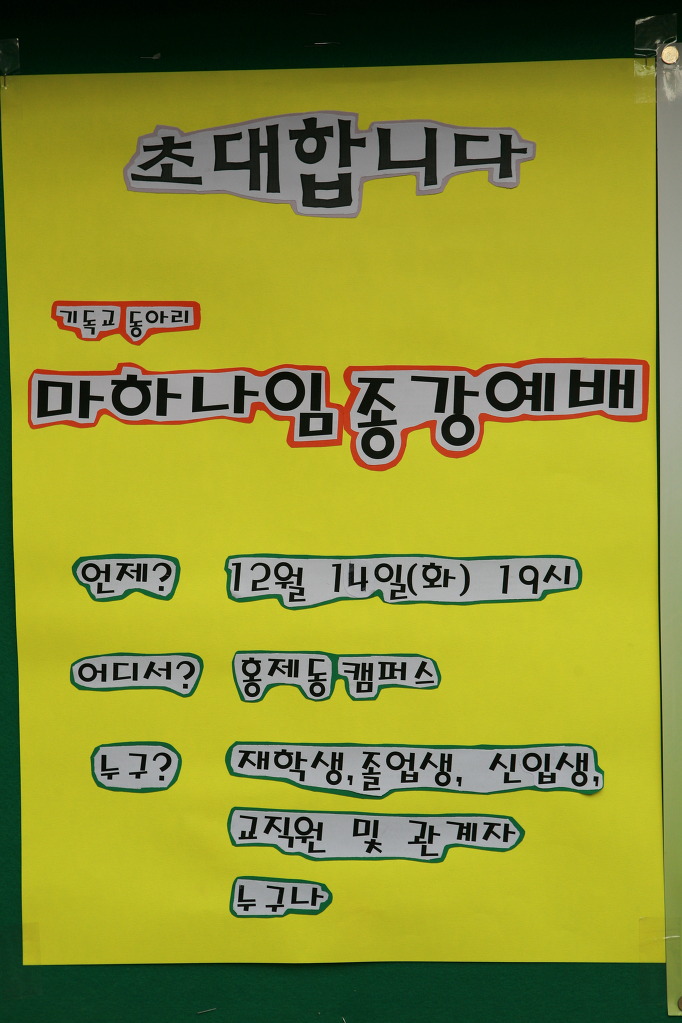 초대합니다
기독교 동아리
마하나임 종강예배
언제? 12월 14일(화) 19시
어디서? 홍제동 캠퍼스
누구? 재학생, 졸업생, 신입생,
교직원 및 관계자
누구나